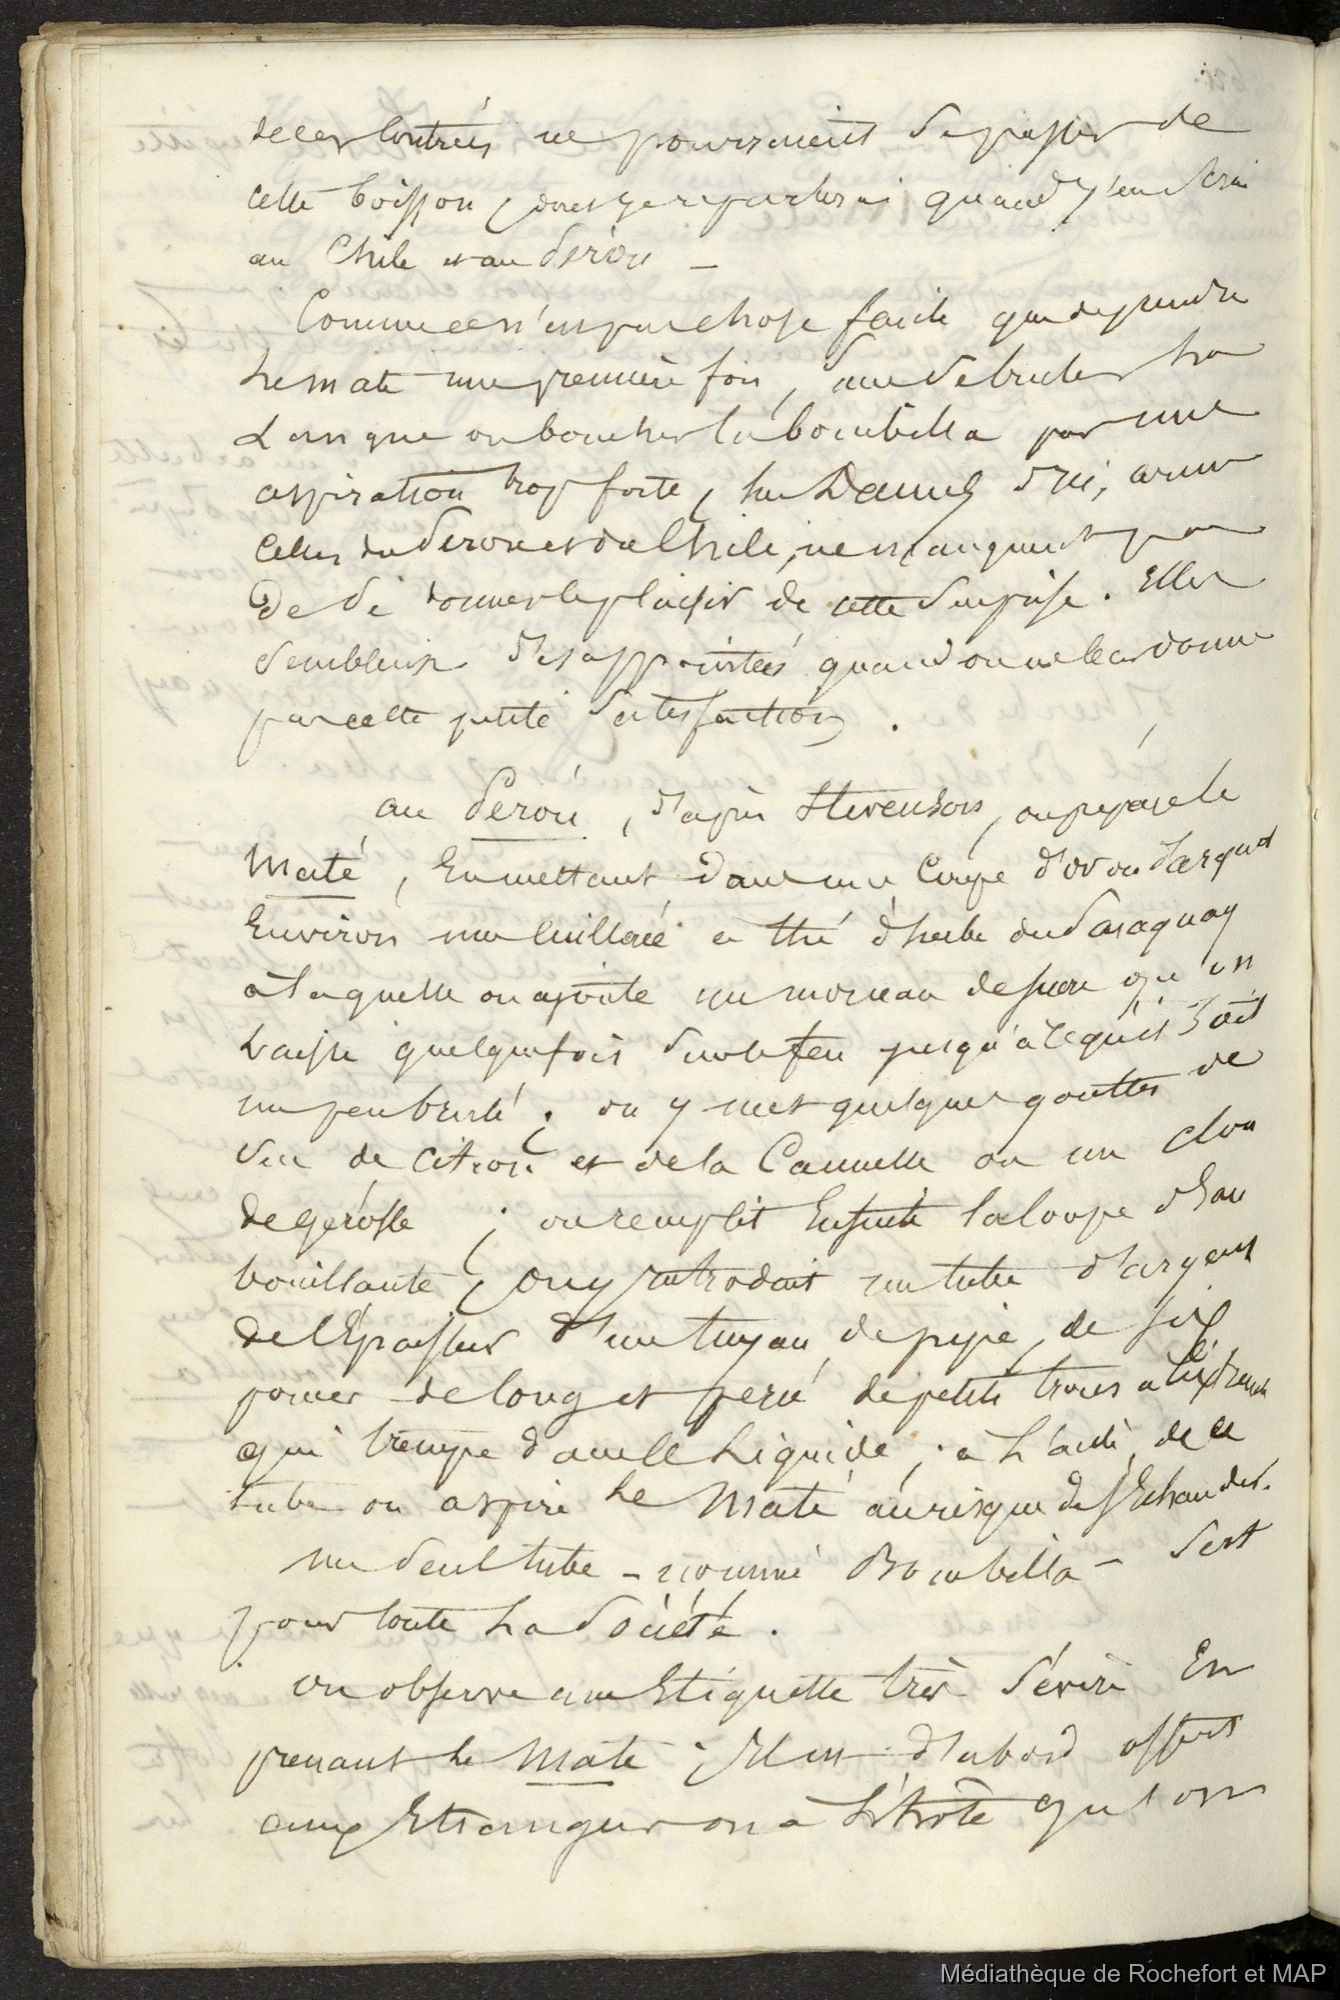 de ces contrées ne pourraient se passer de
cette boisson, dont je reparlerai quand j'en serai
au Chile et au Pérou —
Comme ce n'est pas chose facile que de prendre
Le maté une première fois, sans se bruler La
Langue ou boucher la bombilla par une
aspiration trop forte, les Dames d'ici, comme
celles du Perou et du Chile, ne manquent pas
De se donner le plaisir de cette surprise. Elles
semblent desappointées quand on ne leur donne
pas cette petite satisfaction.
au Pérou, d'après Stevenson, on prepare le
Maté, En mettant dans une Coupe d'or ou d'argent
Environ une cuillerée a thé d'herbe du Paraguay
à laquelle on ajoute un morceau de sucre qu'on
Laisse quelquefois sur le feu jusqu'à ce qu'il soit
un peu brulé; on y met quelques gouttes de
suc de citron et de la Cannelle ou un clou
de gerofle; on remplit Ensuite la Coupe d'Eau
bouillante, on y introduit un tube d'argent
de l'Epaisseur d'un tuyau de pipe, de six
pouces de long et percé de petits trous à l'Extremité
qui trempe dans le Liquide; à L'aide de ce
tube on aspire Le Maté au risque de s'Echauder.
un seul tube – nommé Bombilla – sert
pour toute La Société.
on observe une Etiquette très sévère En
prenant le Maté; Il est d'abord offert
aux Etrangers ou a L'hôte que l'on
Médiathèque de Rochefort et MAP